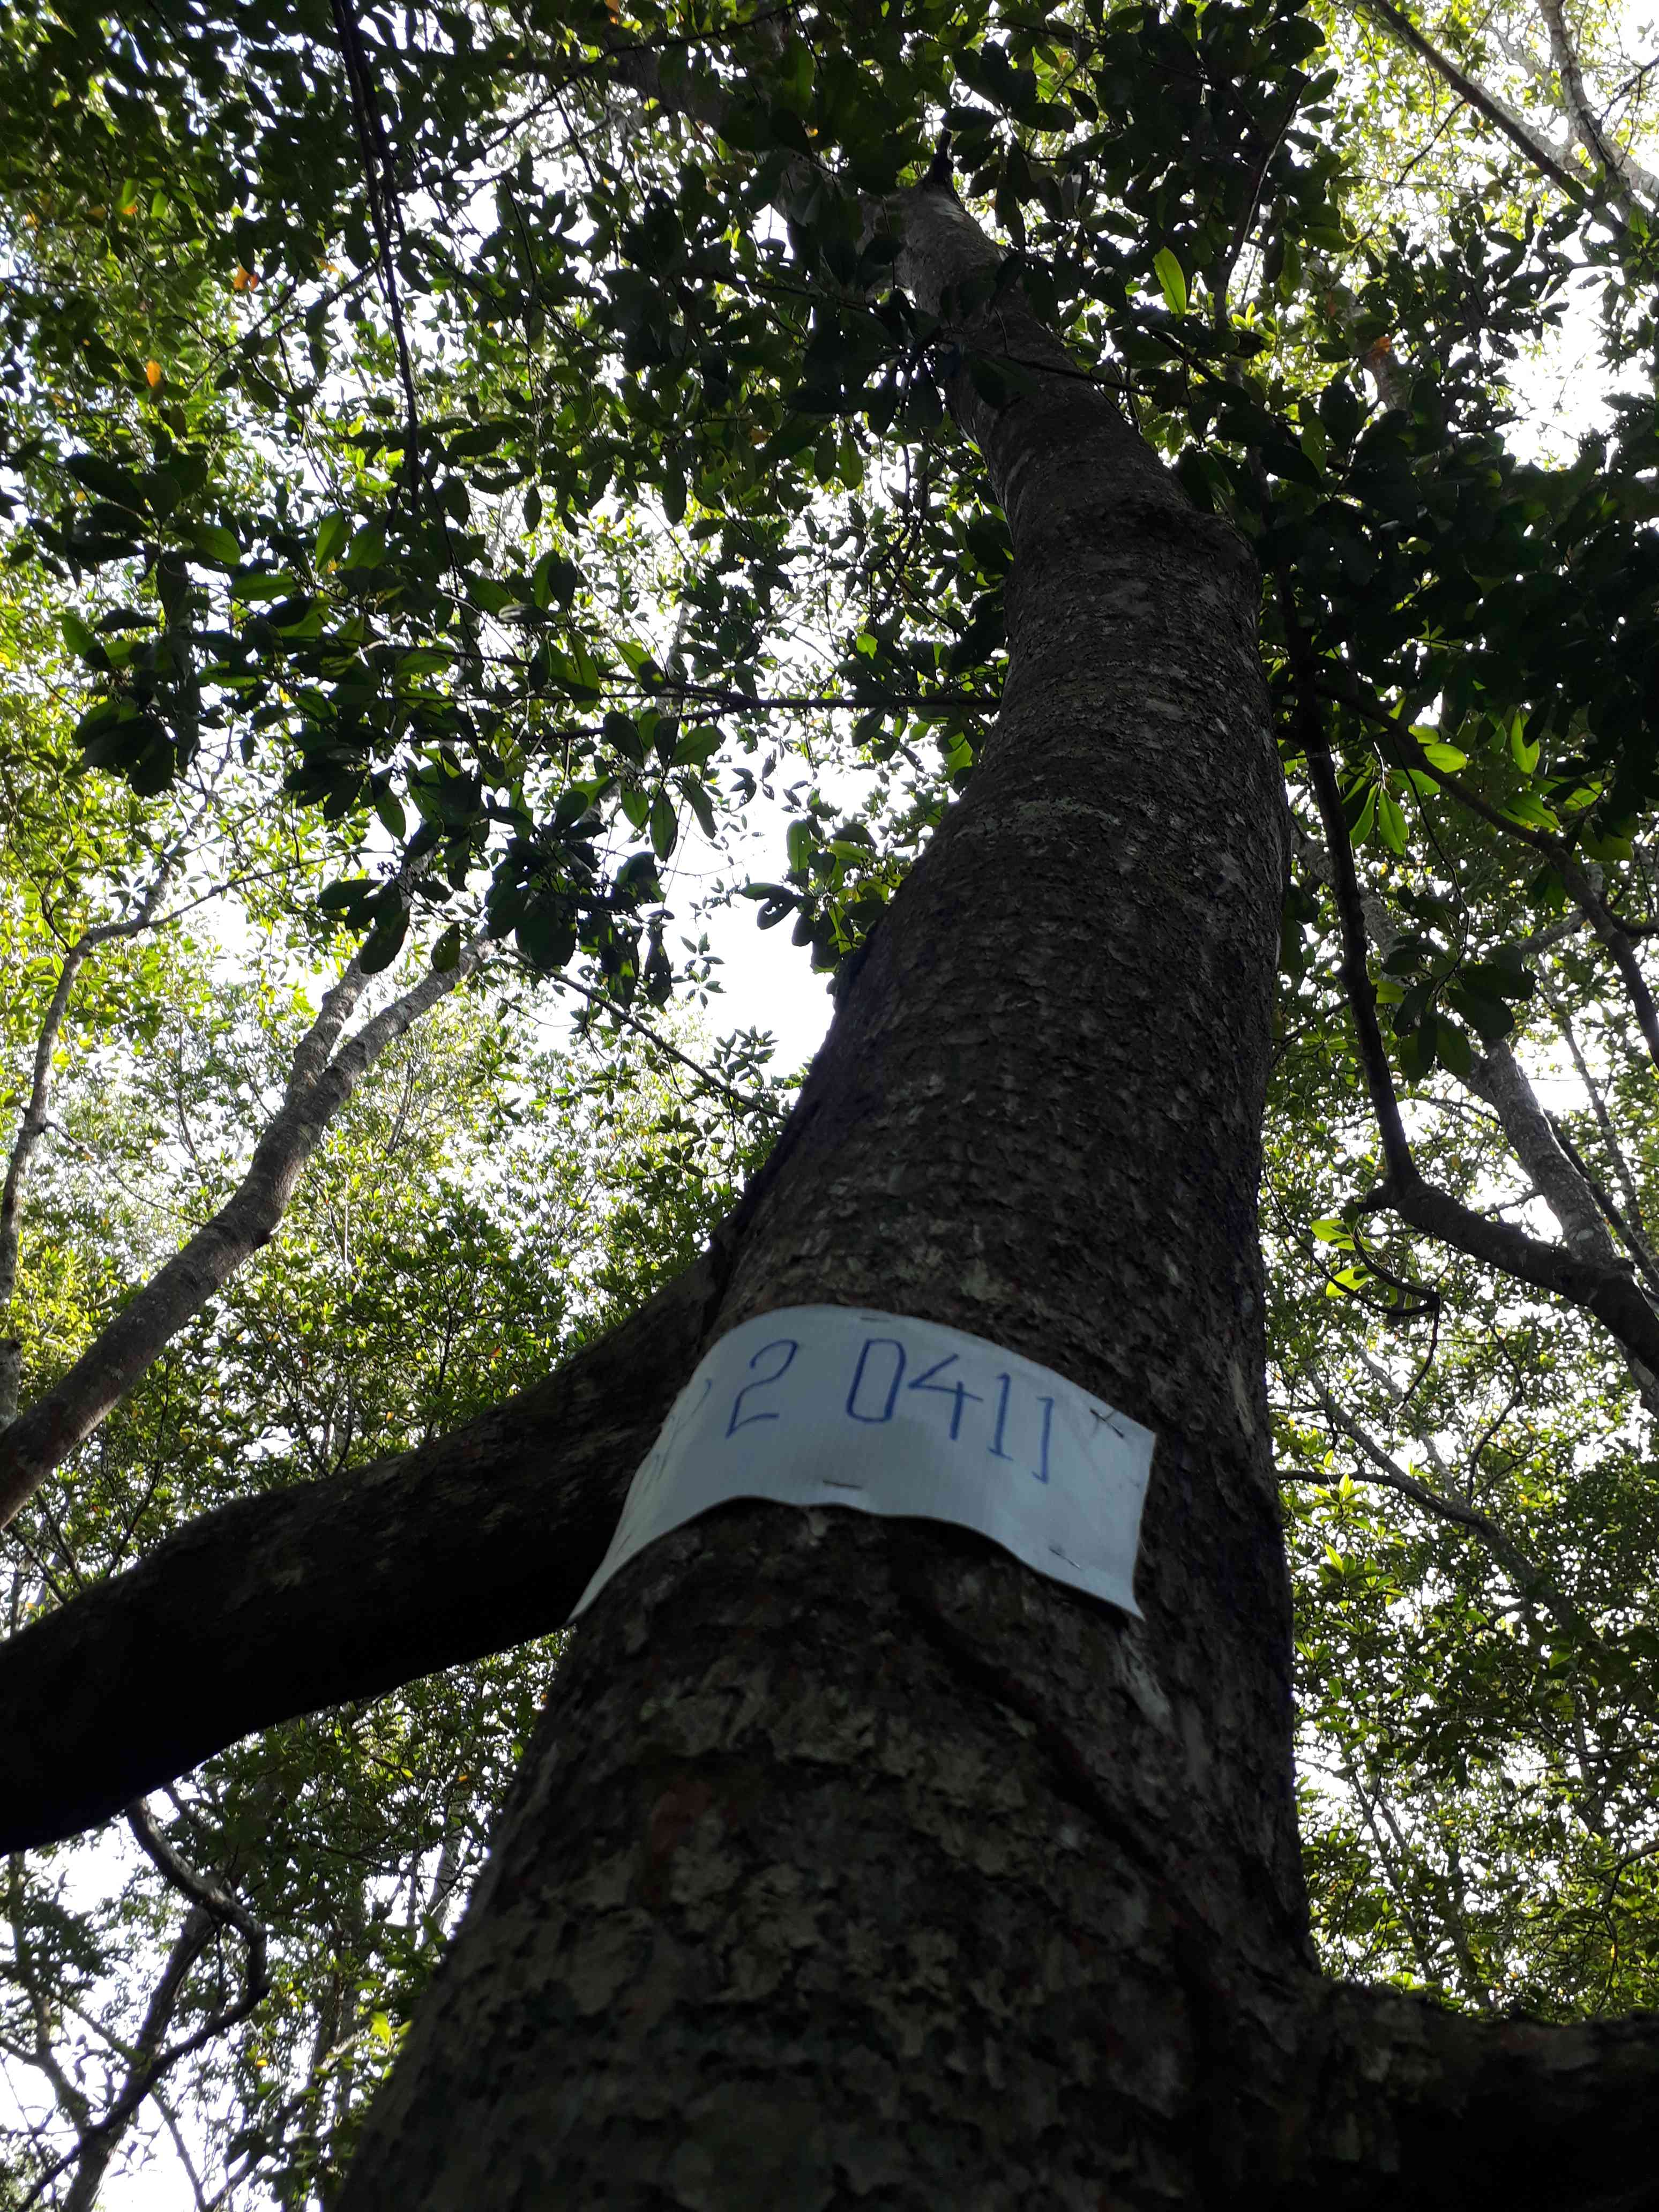 2 0411